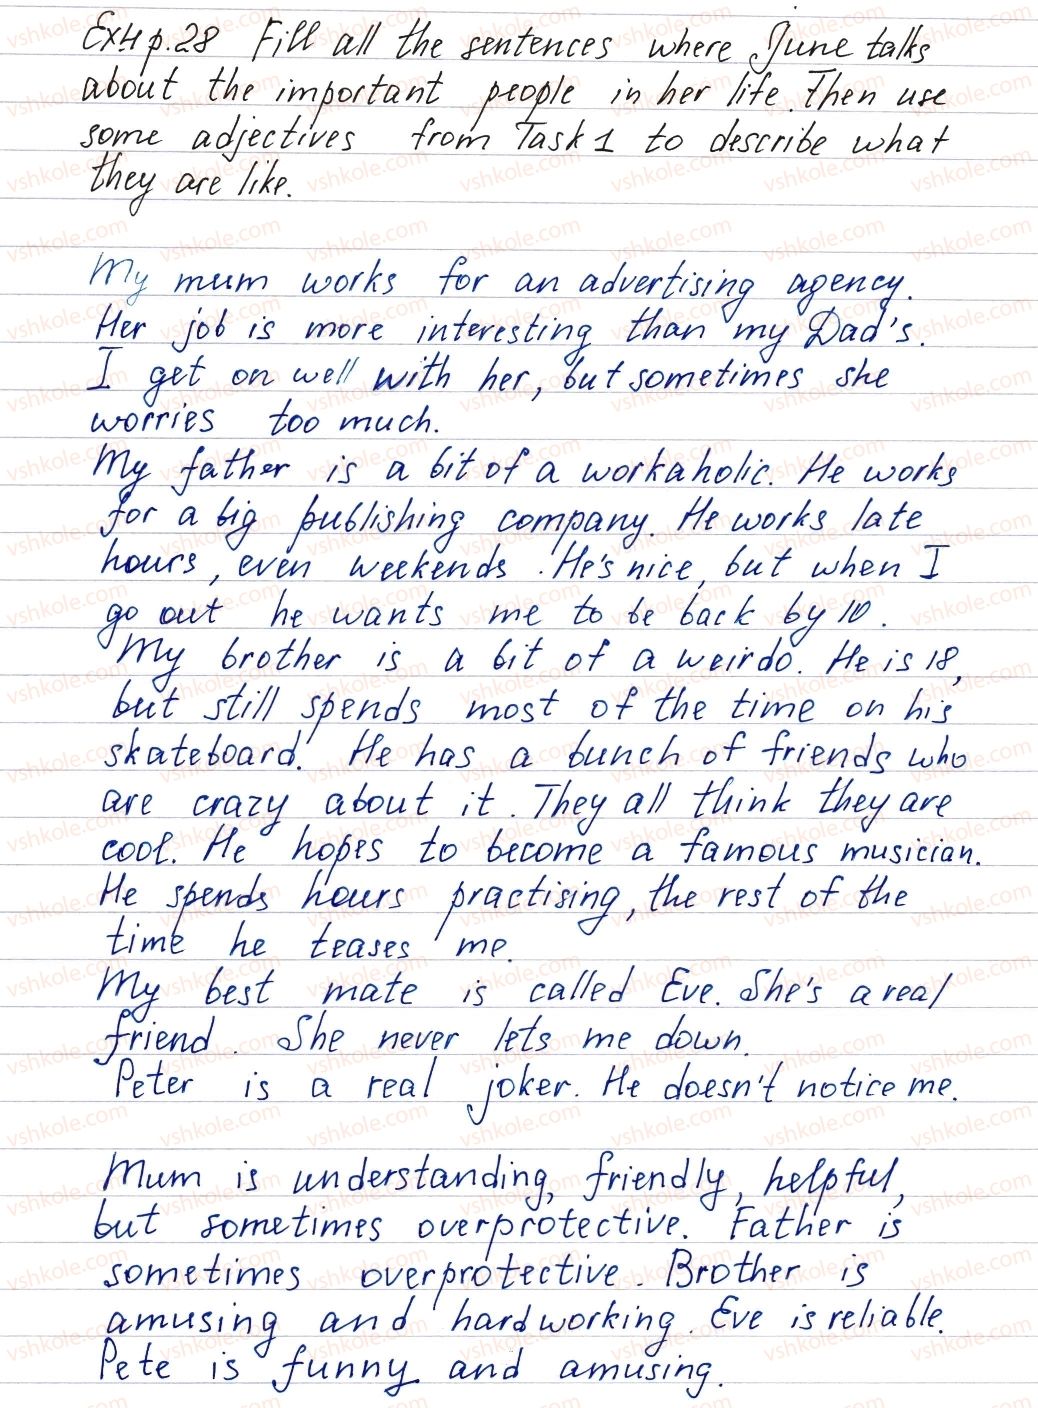 Ex4 p.28 Fill all the sentences where June talks
about the important people in her life. Then use
some adjectives from Task 1 to describe what
they are like.
My mum works for an advertising agency.
Her job is more interesting than my Dad's.
I get on well with her, but sometimes she
worries too much.
My father is a bit of a workaholic. He works
for a big publishing company. He works late
hours, even weekends. He's nice, but when I
go out he wants me to be back by 10.
My brother is a bit of a weirdo. He is 18,
but still spends most of the time on his
skateboard. He has a bunch of friends who
are crazy about it. They all think they are
cool. He hopes to become a famous musician.
He spends hours practising, the rest of the
time he teases me.
My best mate is called Eve. She's a real
friend. She never lets me down.
Peter is a real joker. He doesn't notice me.
Mum is understanding, friendly, helpful,
but sometimes overprotective. Father is
sometimes overprotective. Brother is
amusing and hardworking. Eve is reliable.
Pete is funny and amusing.
vshkole.com